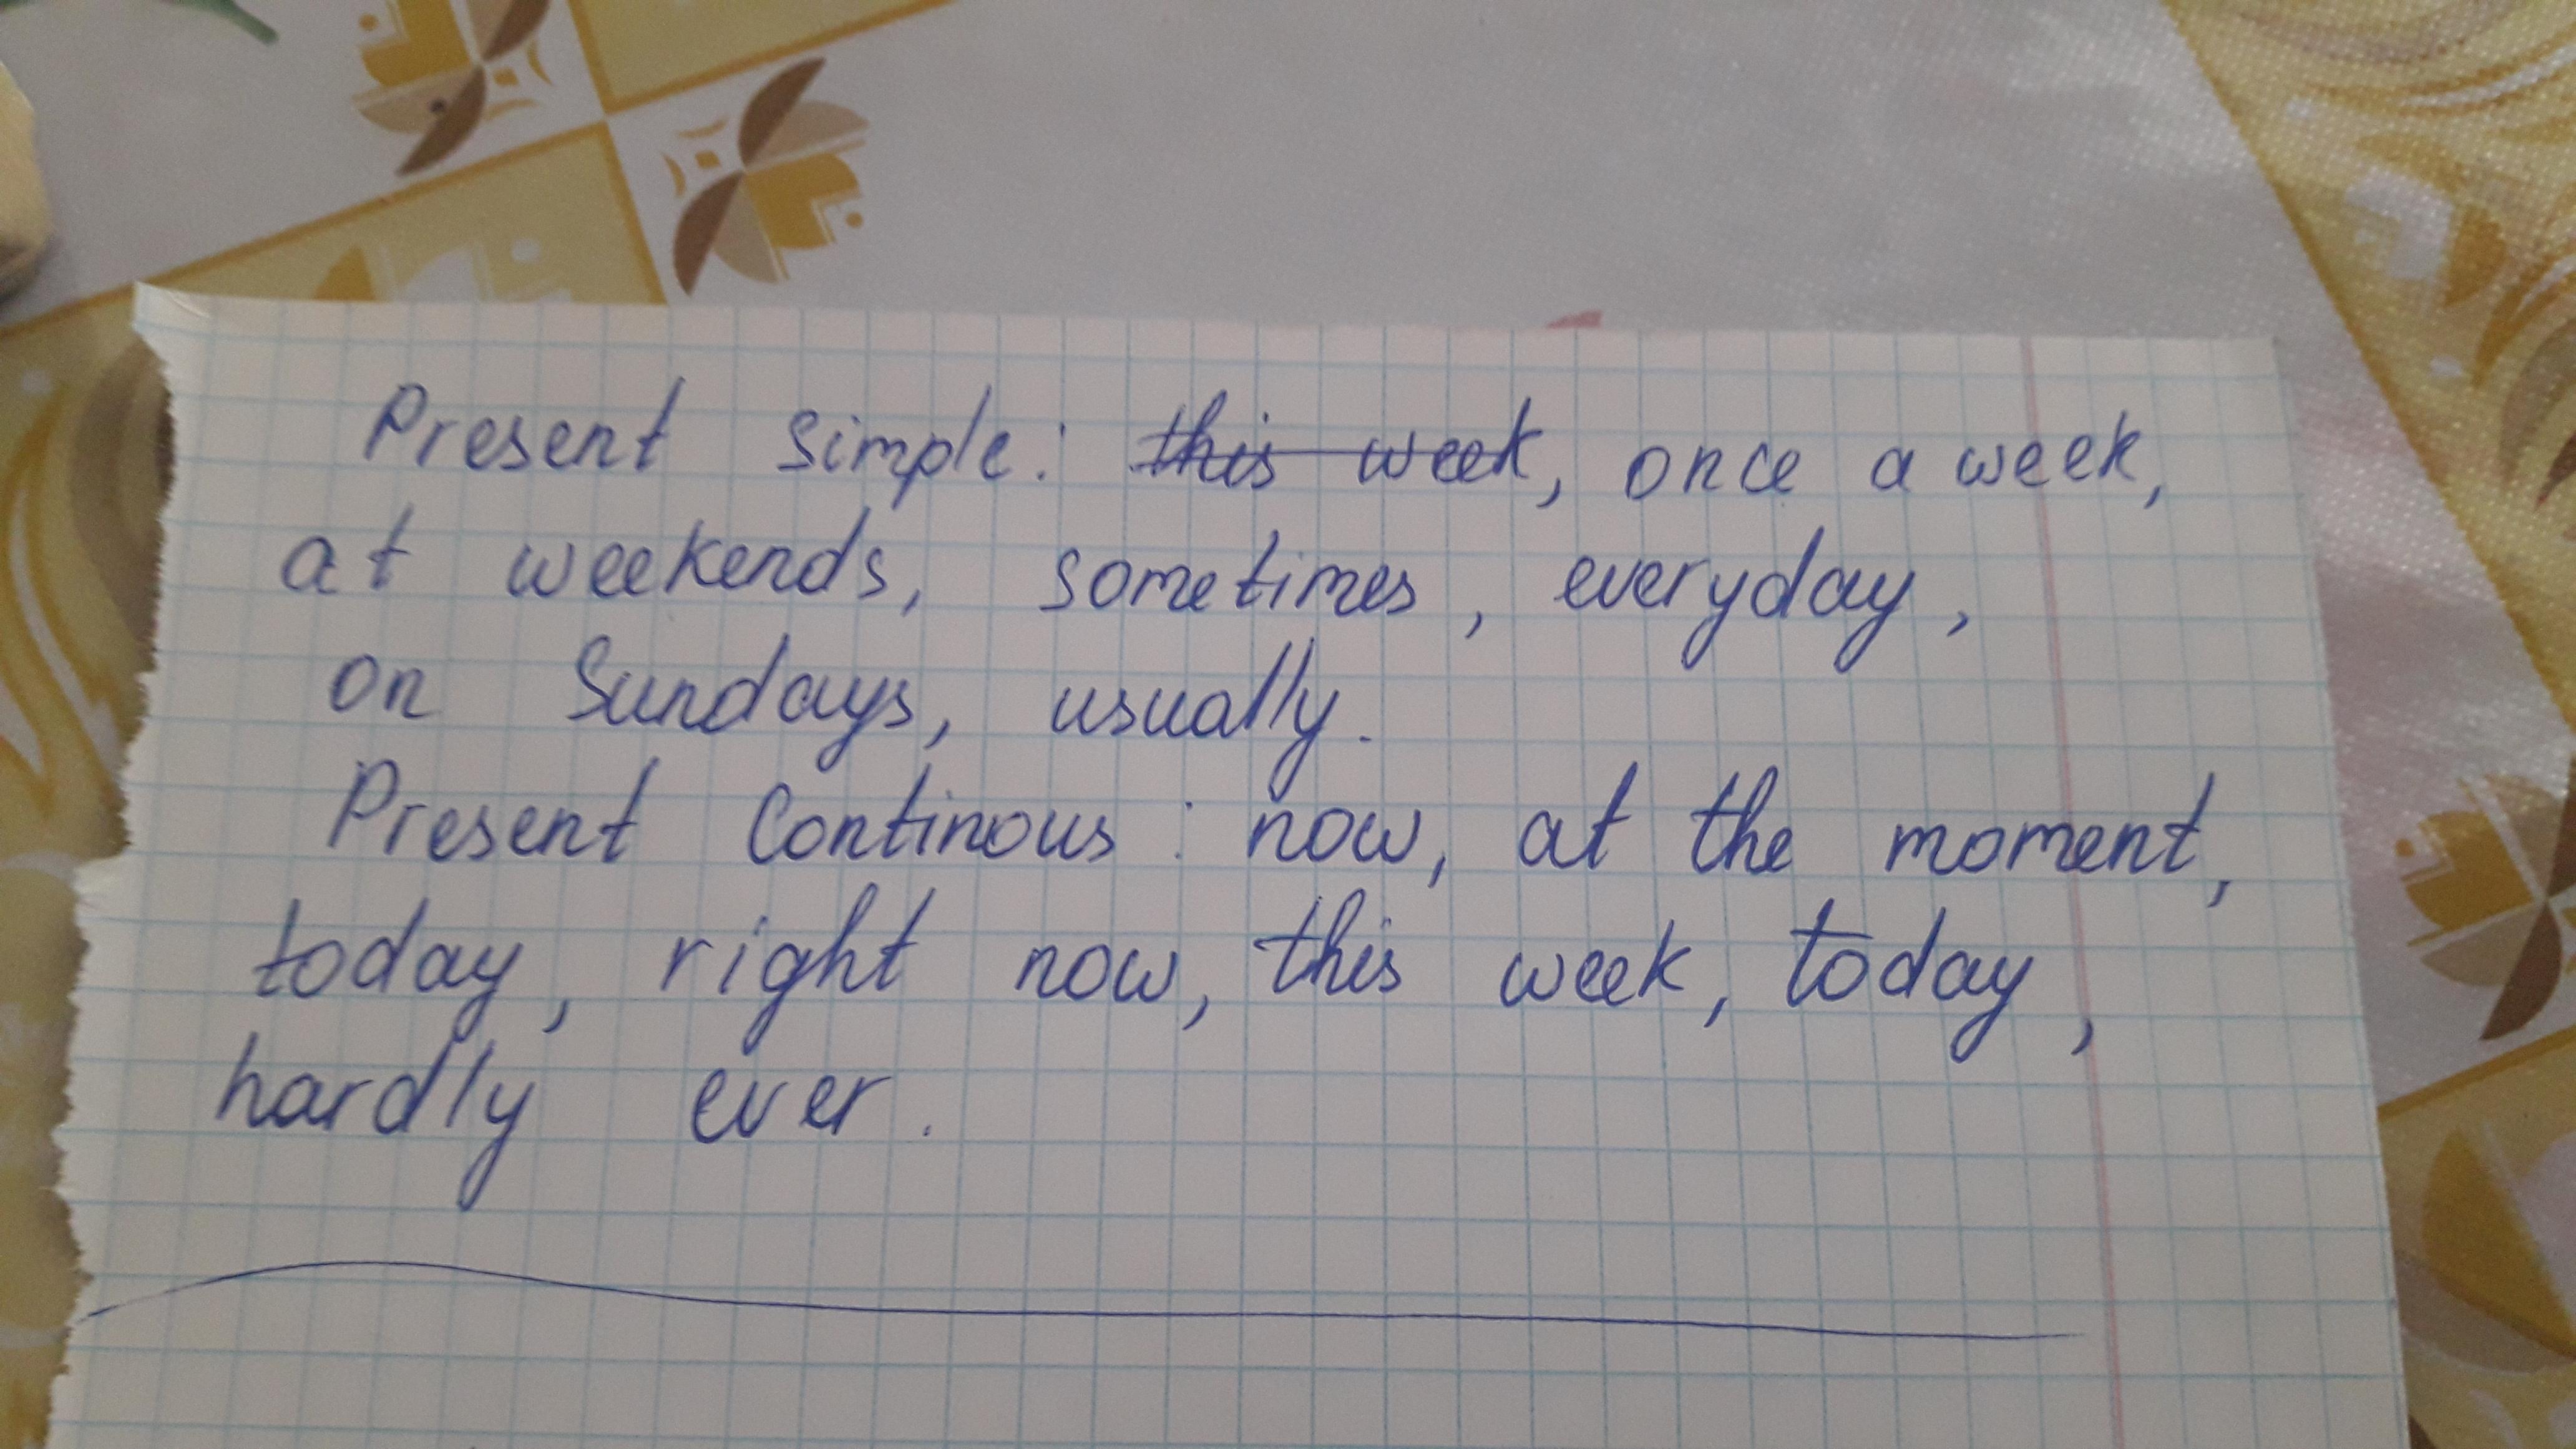 Present Simple: this week, once a week,
at weekends, sometimes, everyday,
on Sundays, usually.
Present Continous: now, at the moment,
today, right now, this week, today,
hardly ever.